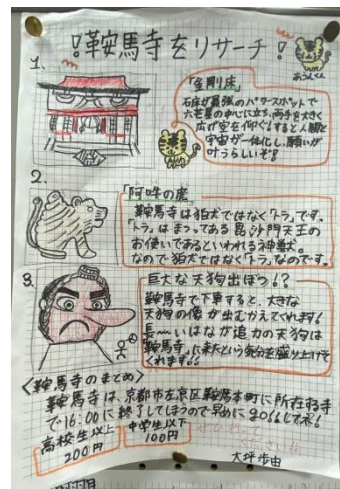 !鞍馬寺をリサーチ!
あうんくん
1.
「金剛床」
石床が最強のパワースポットで
六芒星の中心に立ち、両手を大きく
広げ空を仰ぐ!すると人間と
宇宙が一体化し、願いが
叶うらしいぞ!
2.
「阿吽の虎」
鞍馬寺は狛犬ではなく「トラ」です。
「トラ」はまつってある毘沙門天王の
お使いであるといわれる神獣。
なので狛犬ではなく「トラ」なのです。
3.
巨大な天狗出ぼつ!?
鞍馬寺で下車すると、大きな
天狗の像が出むかえてくれます!
長〜いはなが迫力の天狗は
鞍馬寺に来たという気分を盛り上げて
くれます!!
<鞍馬寺のまとめ>
鞍馬寺は、京都市左京区鞍馬本町に所在する寺
で16:00に終了してしまうので早めに
高校生以上
200円
中学生以下
100円
大坪歩由